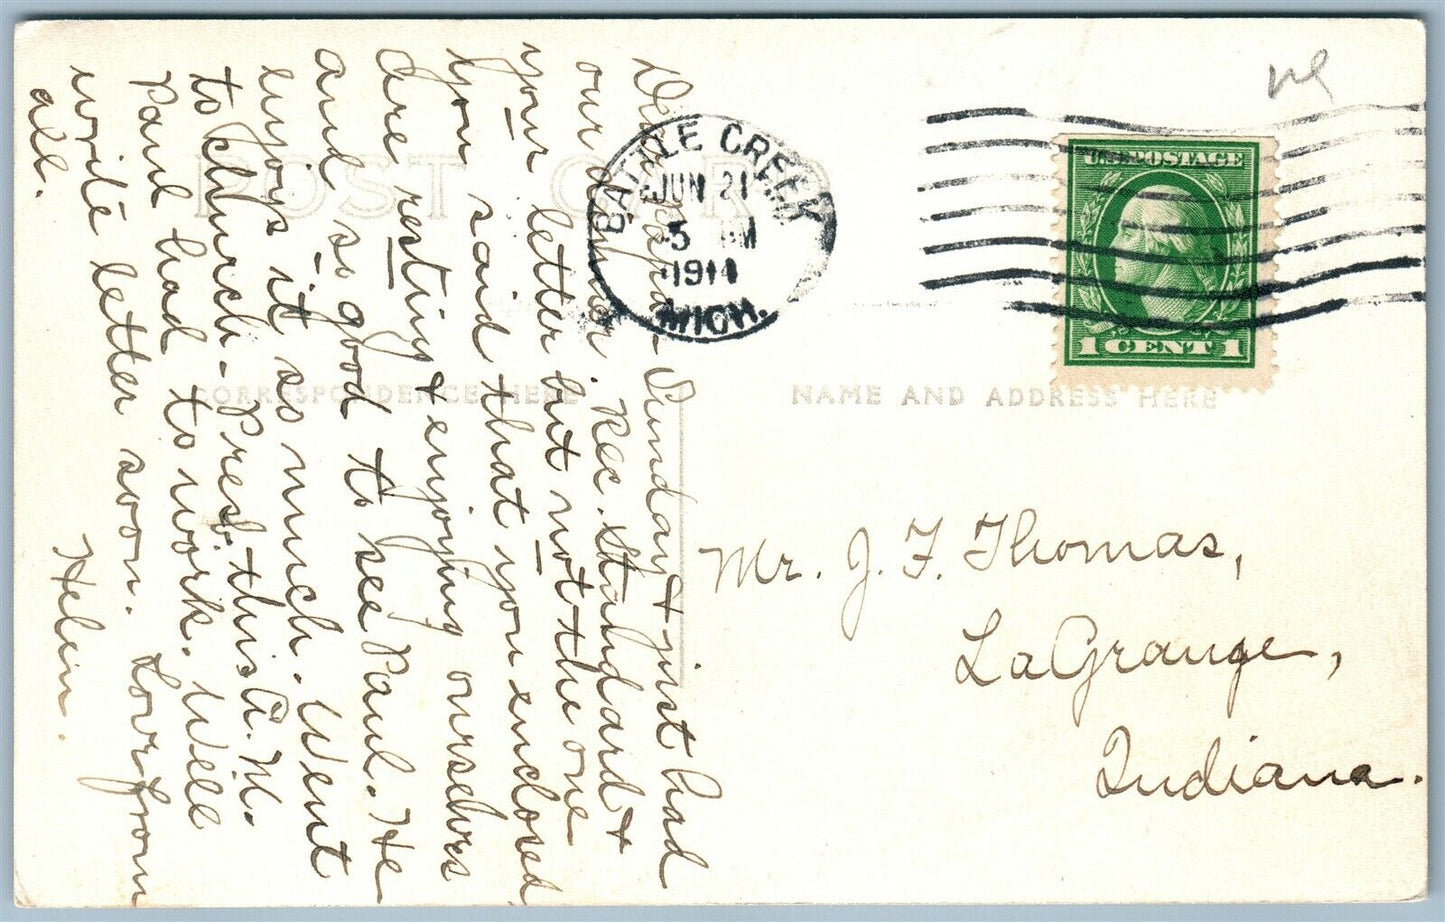 Dear Papa - Sunday & just had
our dinner. Rec. Standard &
your letter but not the one
you said that you enclosed
Are resting & enjoying ourselves
and so good to see Paul. He
enjoys it so much. Went
to church - Pres. this A.M.
Paul had to work. Will
write letter soon. Love from
all.
Helen.
POST CARD
CORRESPONDENCE HERE
BATTLE CREEK
JUN 21
5 PM
1914
MICH.
U.S. POSTAGE
1 CENT 1
NAME AND ADDRESS HERE
Mr. J. F. Thomas,
LaGrange,
Indiana.